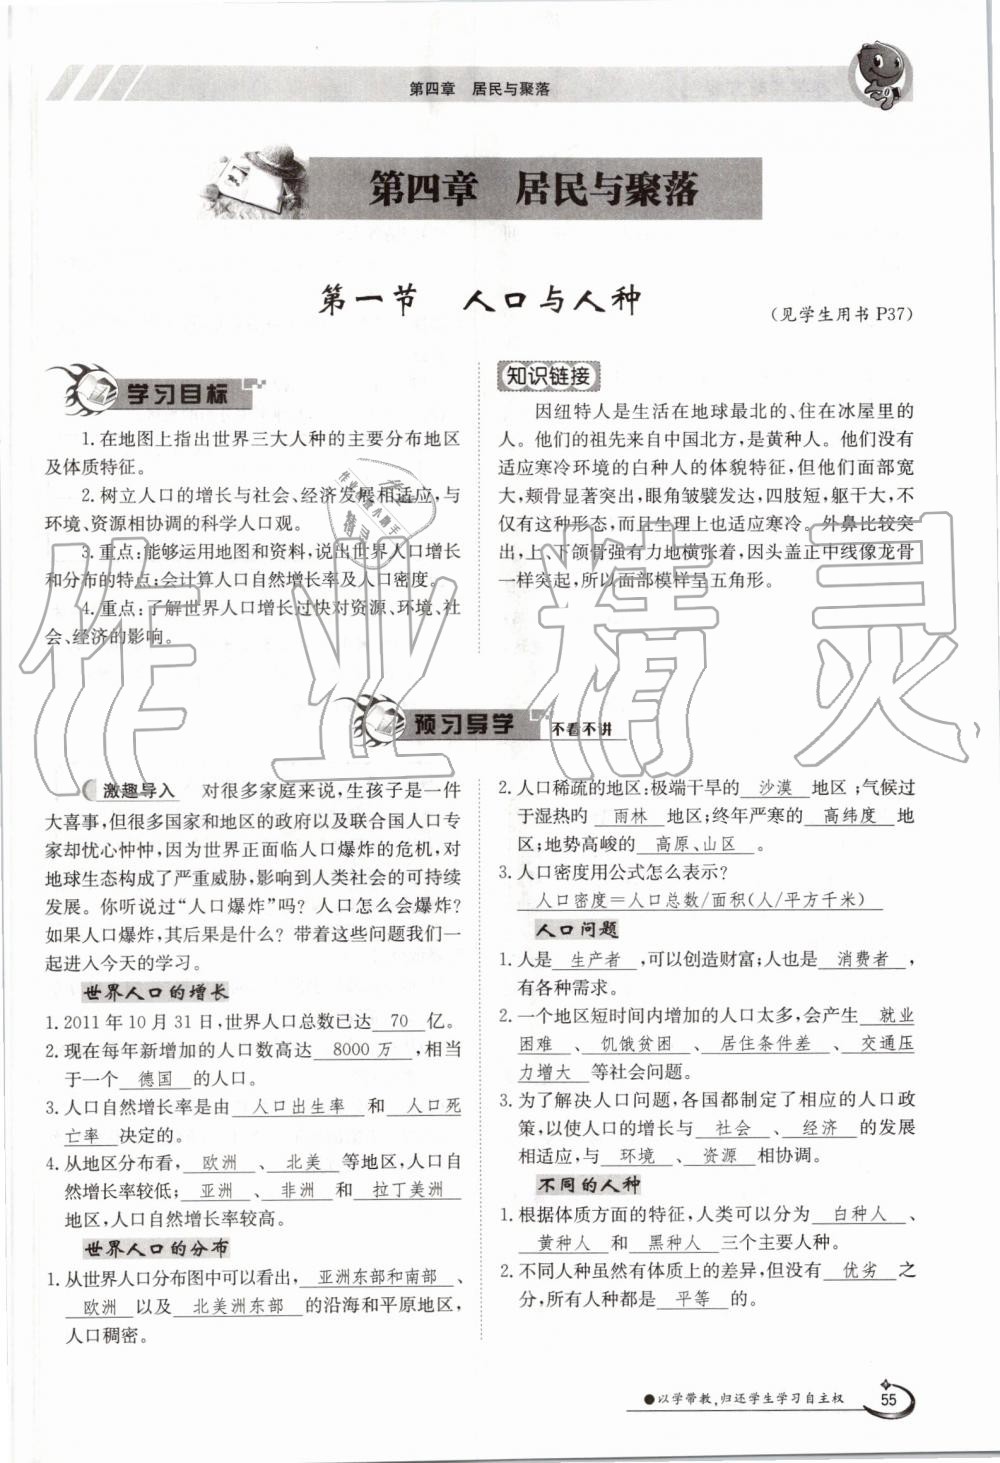 第四章 居民与聚落
第四章 居民与聚落
第一节 人口与人种
(见学生用书 P37)
学习目标
1.在地图上指出世界三大人种的主要分布地区
及体质特征。
2.树立人口的增长与社会、经济发展相适应,与
环境、资源相协调的科学人口观。
3.重点:能够运用地图和资料,说出世界人口增长
和分布的特点;会计算人口自然增长率及人口密度。
4.重点:了解世界人口增长过快对资源、环境、社
会、经济的影响。
知识链接
因纽特人是生活在地球最北的、住在冰屋里的
人。他们的祖先来自中国北方,是黄种人。他们没有
适应寒冷环境的白种人的体貌特征,但他们面部宽
大,颊骨显著突出,眼角皱襞发达,四肢短,躯干大,不
仅有这种形态,而且生理上也适应寒冷。外鼻比较突
出,上、下颌骨强有力地横张着,因头盖正中线像龙骨
一样突起,所以面部模样呈五角形。
预习导学 不看不讲
激趣导入 对很多家庭来说,生孩子是一件
大喜事,但很多国家和地区的政府以及联合国人口专
家却忧心忡忡,因为世界正面临人口爆炸的危机,对
地球生态构成了严重威胁,影响到人类社会的可持续
发展。你听说过“人口爆炸”吗? 人口怎么会爆炸?
如果人口爆炸,其后果是什么? 带着这些问题我们一
起进入今天的学习。
世界人口的增长
1.2011年10月31日,世界人口总数已达 70 亿。
2.现在每年新增加的人口数高达 8000万 ,相当
于一个 德国 的人口。
3.人口自然增长率是由 人口出生率 和 人口死
亡率 决定的。
4.从地区分布看, 欧洲 、 北美 等地区,人口自
然增长率较低; 亚洲 、 非洲 和 拉丁美洲
地区,人口自然增长率较高。
世界人口的分布
1.从世界人口分布图中可以看出, 亚洲东部和南部 、
欧洲 以及 北美洲东部 的沿海和平原地区,
人口稠密。
2.人口稀疏的地区:极端干旱的 沙漠 地区;气候过
于湿热旳 雨林 地区;终年严寒的 高纬度 地
区;地势高峻的 高原、山区 。
3.人口密度用公式怎么表示?
人口密度=人口总数/面积(人/平方千米)
人口问题
1.人是 生产者 ,可以创造财富;人也是 消费者 ,
有各种需求。
2.一个地区短时间内增加的人口太多,会产生 就业
困难 、 饥饿贫困 、 居住条件差 、 交通压
力增大 等社会问题。
3.为了解决人口问题,各国都制定了相应的人口政
策,以使人口的增长与 社会 、 经济 的发展
相适应,与 环境 、 资源 相协调。
不同的人种
1.根据体质方面的特征,人类可以分为 白种人 、
黄种人 和 黑种人 三个主要人种。
2.不同人种虽然有体质上的差异,但没有 优劣 之
分,所有人种都是 平等 的。
●以学带教,归还学生学习自主权
55
作业精灵